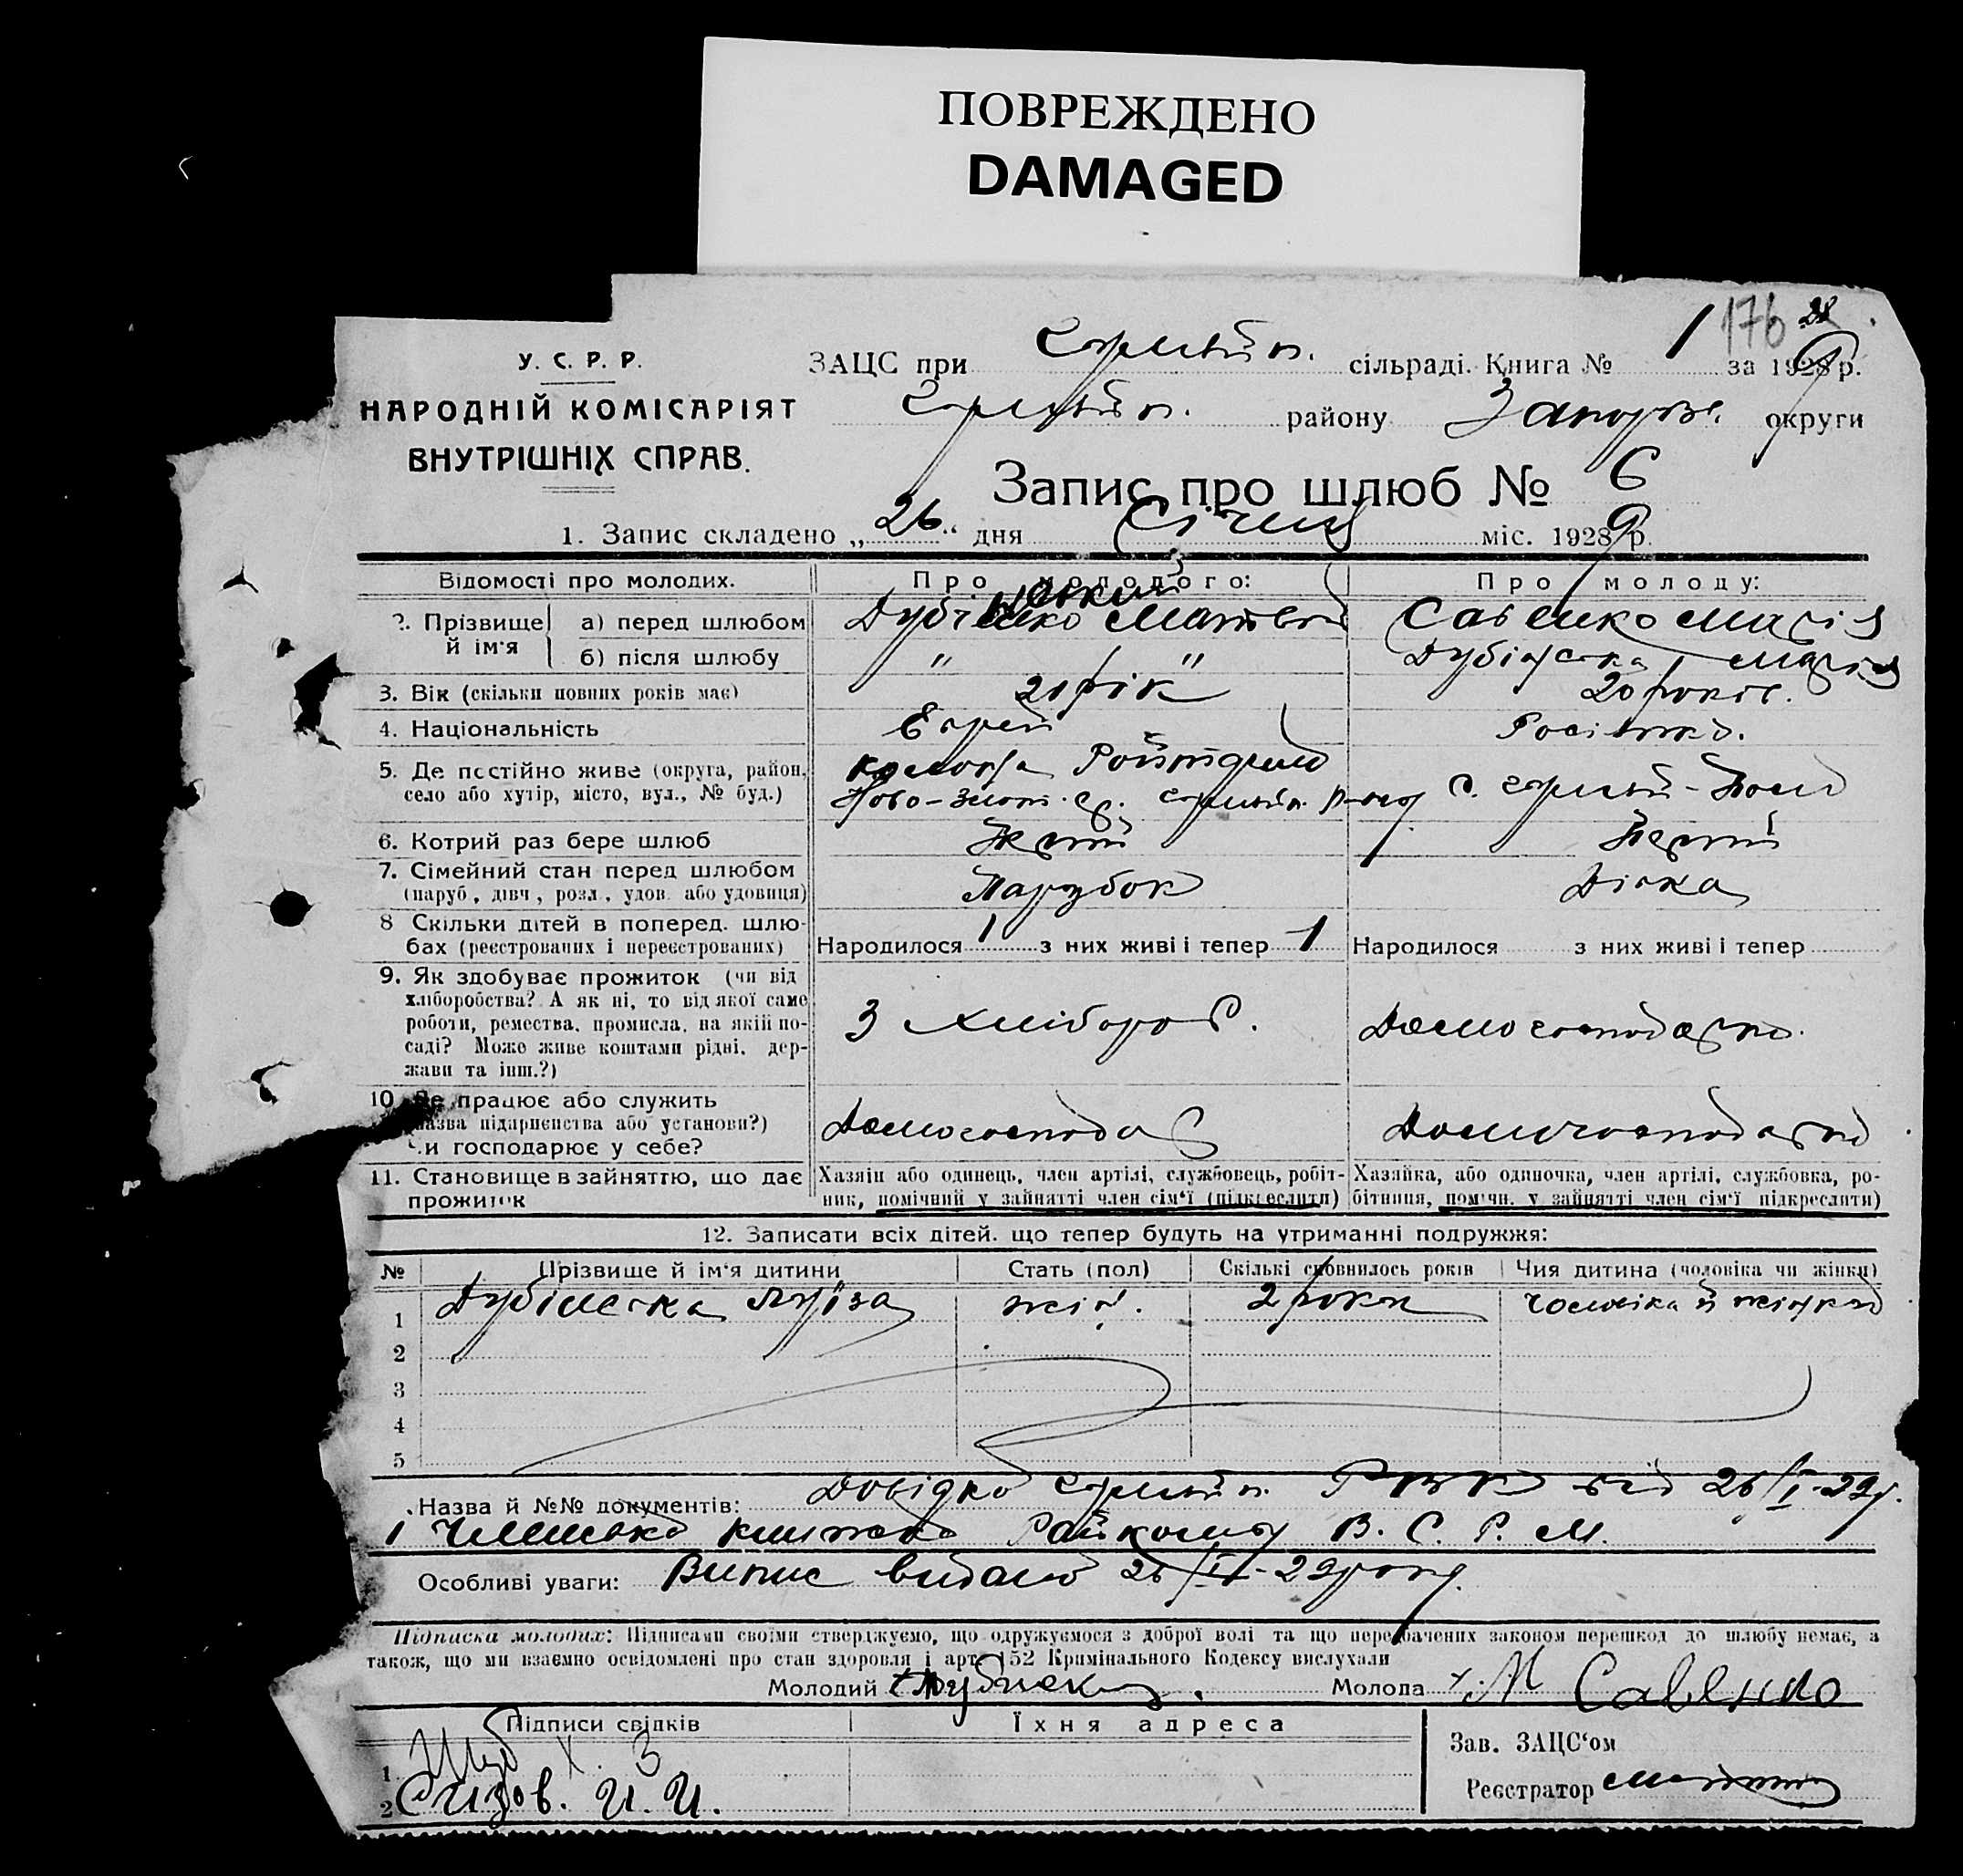 ПОВРЕЖДЕНО
DAMAGED
176 28
У. С. Р. Р.
НАРОДНІЙ КОМІСАРІЯТ
ВНУТРІШНІХ СПРАВ.
ЗАЦС при сільраді. Книга № 1 за 1929 р.
району Запоріз. округи
Запис про шлюб № 6
1. Запис складено „26“ дня Січня міс. 1929 р.
Відомості про молодих. Про молодого: Про молоду:
2. Прізвище й ім'я а) перед шлюбом Дубінський Матвей Савенко Марія
б) після шлюбу " " Дубінська Марія
3. Вік (скільки повних років має) 21 рік 20 років.
4. Національність Еврей Росіянка.
5. Де постійно живе (округа, район, село або хутір, місто, вул., № буд.) колонія Ново-Злат.
6. Котрий раз бере шлюб Перший Перший
7. Сімейний стан перед шлюбом (паруб., дівч., розл., удов. або удовиця) Парубок Дівка
8 Скільки дітей в поперед. шлюбах (реєстрованих і нереєстрованих) Народилося 1 з них живі і тепер 1 Народилося з них живі і тепер
9. Як здобуває прожиток (чи від хліборобства? А як ні, то від якої саме роботи, ремества, промисла, на якій посаді? Може живе коштами рідні, держави та інш.?) З хлібороб. Домогосподарка.
10. Де працює або служить (назва підприємства або установи?) Чи господарює у себе? Домогосподар Домогосподарка
11. Становище в зайняттю, що дає прожиток Хазяїн або одинець, член артілі, службовець, робітник, помічний у зайнятті член сім'ї (підкреслити) Хазяйка, або одиночка, член артілі, службовка, робітниця, помічн. у зайнятті член сім'ї підкреслити)
12. Записати всіх дітей, що тепер будуть на утриманні подружжя:
№ Прізвище й ім'я дитини Стать (пол) Скількі сповнилось років Чия дитина (чоловіка чи жінки)
1 Дубінська Луїза жін. 2 роки чоловіка й жінки
2
3
4
5
Назва й №№ документів: Довідка РВК від 26/I-29р.
і членська книжка Райкому В. С. Р. М.
Особливі уваги: Випис видано 26/I-29 року.
Підписка молодих: Підписами своїми стверджуємо, що одружуємося з доброї волі та що передбачених законом перешкод до шлюбу немає, а
також, що ми взаємно освідомлені про стан здоровля і арт. 152 Кримінального Кодексу вислухали
Молодий Дубинский. Молода М Савенко
Підписи свідків Їхня адреса
1 Х. З
2 Сизов. И. И.
Зав. ЗАЦС'ом
Реєстратор